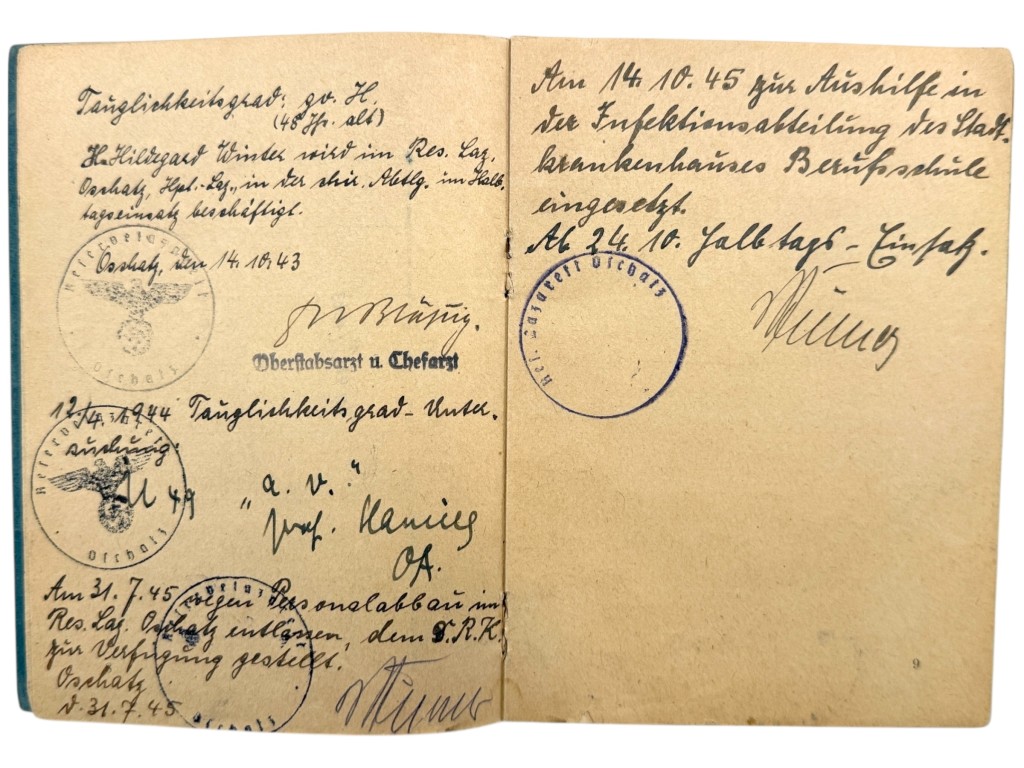 Tauglichkeitsgrad: gv. H.
(45 Jhr. alt)
H. Hildegard Winter wird im Res. Laz.
Oschatz, Hpt.-Laz., in der chir. Abtlg. im Halb-
tagseinsatz beschäftigt.
Reservelazarett
Oschatz, den 14.10.43
Oschatz
Oberstabsarzt u. Chefarzt
12./4. 1944 Tauglichkeitsgrad-Unter-
suchung:
Reservelazarett
49 "a. v."
Prof.
OA.
Oschatz
Am 31.7.45 wegen Personalabbau im
Res. Laz. Oschatz entlassen, dem D.R.K.
zur Verfügung gestellt.
Oschatz
d. 31.7.45
Reservelaz
Oschatz
Am 14.10.45 zur Aushilfe in
der Infektionsabteilung des Stadt-
krankenhauses Berufsschule
eingesetzt.
Ab 24.10. Halbtags-Einsatz.
Res. Lazarett Oschatz
9